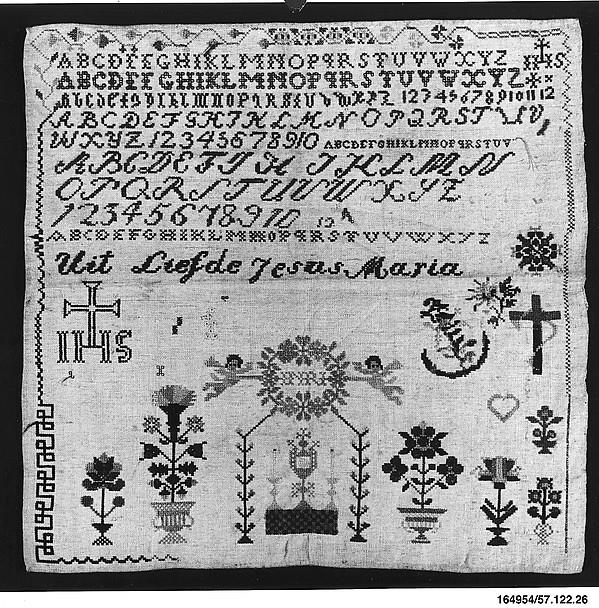 ABCDEFGHIKLMNOPQRSTUVWXYZ IHS
ABCDEFGHIKLMNOPQRSTUVWXYZ
1234567891011 12
ABCDEFGHIKLMNOPQRSTUV,
WXYZ12345678910 ABCDEFGHIKLMNOPQRSTUV
ABCDEFGHIKLMN
OPQRSTUVWXYZ
12345678910
ABCDEFGHIKLMNOPQRSTUVWXYZ
Uit Liefde Jesus Maria
IHS
164954/57.122.26